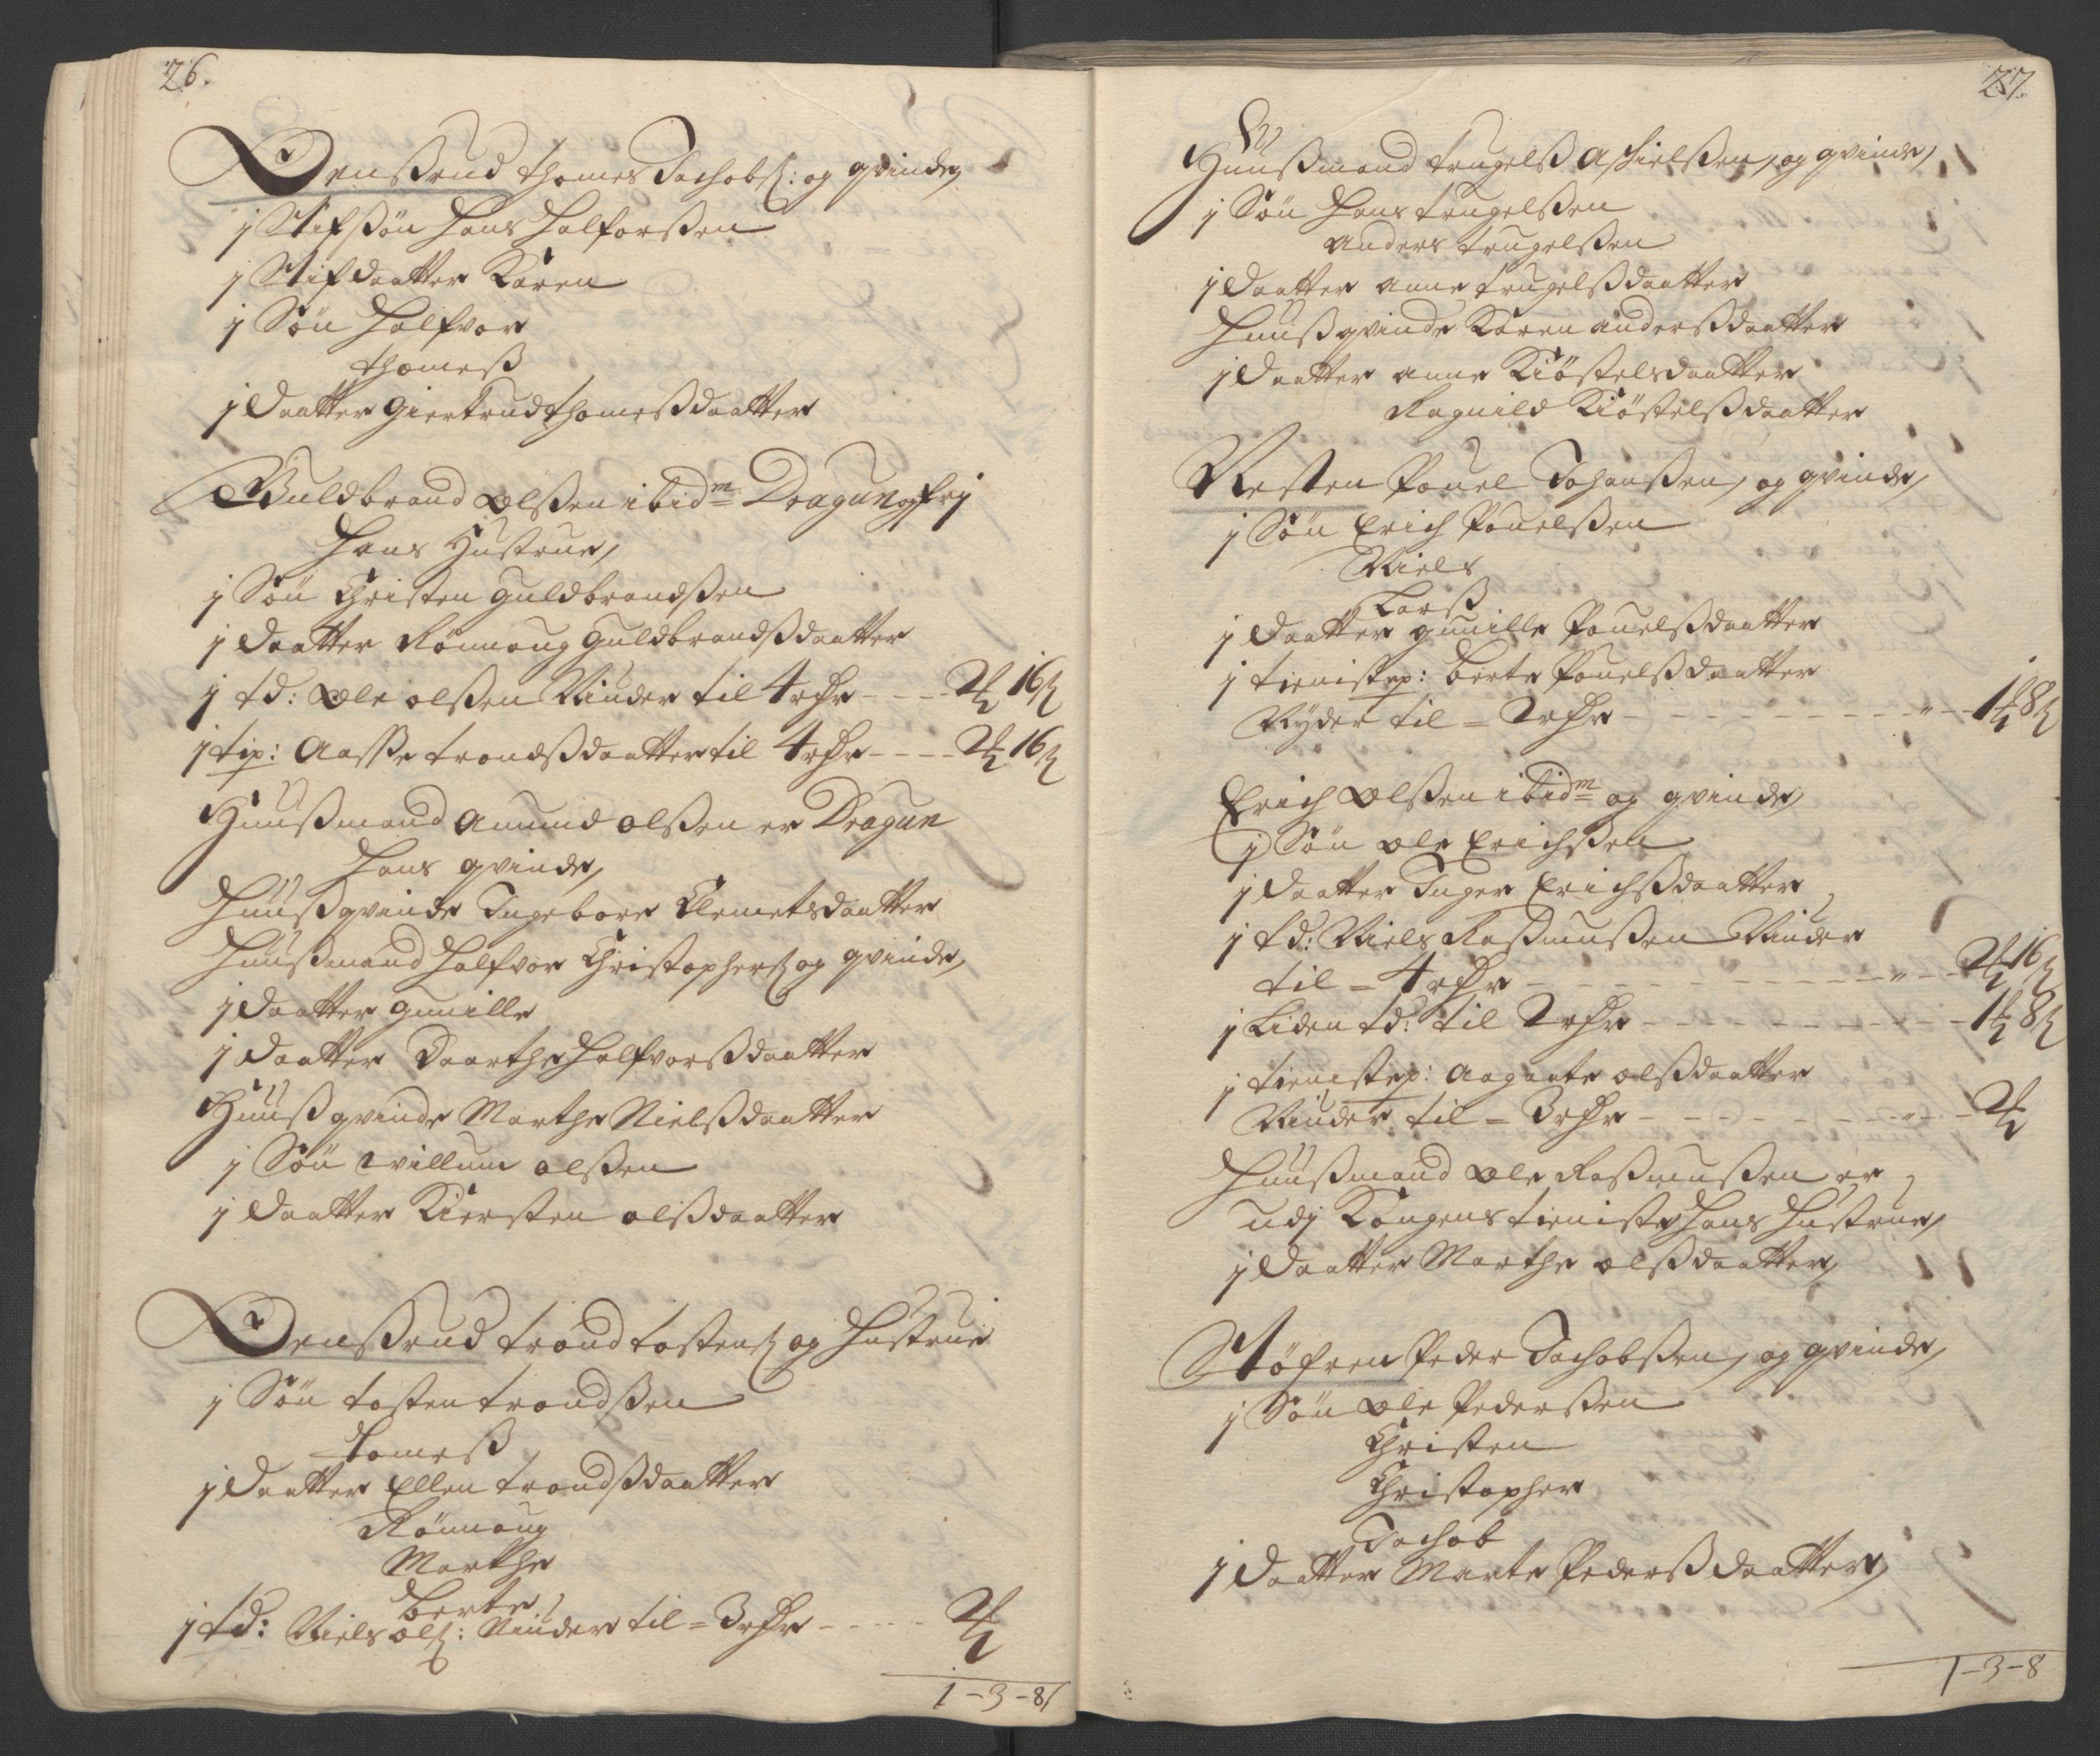 26.
Denßrud Thomes Jachobs: og qvinde,
j Stifsøn Hans Halforßen
j Stifdaatter Karen
j Søn Halfvor
Thomeß
j Daatter Giertrud Thomeßdaatter
Guldbrand Olßen ibidm Dragun og frj
Hans Hustrue,
j Søn Christen Guldbrandßen
j Daatter Rönnoug Guldbrandßdaatter
j td: Ole Olßen Niuder til 4 rdr - - - 2 16
j tip: Aasße Trondßdaatter til 4 rdr - - - 2 16
Huußmand Amund Olßen er Dragun
Hans qvinde,
Huußqvinde Ingebore Clemetsdaatter
Huußmand Halfvor Christophers og qvinde,
j Daatter Gunille
j Daatter Daarthe Halfvorßdaatter
Huußqvinde Marthe Nielßdaatter
j Søn Willum Olßen
j Daatter Kiersten Olßdaatter
Denßrud Trond Tostens og Hustrue
j Søn Tosten Trondßen
Tomeß
j Daatter Ellen Trondßdaatter
Rönnoug
Marthe
Berte,
j td: Niels Ols: Niuder til = 3 rdr - - - - 2
1-3-8
27.
Huußmand Trugelß Aschielßen, og qvinde,
j Søn Hans Trugelßen
Anders Trugelßen
j Daatter Anne Trugelßdaatter
Huußqvinde Karen Anderßdaatter
j Daatter Anne Kiöstelsdaatter
Ragnild Kiöstelßdaatter
Nesten Pouel Johanßen, og qvinde,
j Søn Erich Pouelßen
Niels
Larß
j Daatter Gunille Pouelßdaatter
j tienistep: Berte Pouelßdaatter
Nyder til = 2 rdr - - - - - - - - - 1 8
Erich Olßen ibidm og qvinde,
j Søn Ole Erichßen
j Daatter Inger Erichßdaatter
j td: Niels Raßmußen Niuder
til = 4 rdr - - - - - - - - - - 2 16
j Liden td: til 2 rdr - - - - - - - - 1 8
j tienistep: Aagaate Olßdaatter
Niuder til = 3 rdr - - - - - - - - 2
Huußmand Ole Raßmußen er
udj Kongens tieniste, Hans Hustrue,
j Daatter Marthe Olßdaatter,
Stöfren Peder Jachobßen, og qvinde,
j Søn Ole Pederßen
Christen
Christopher
Jachob
j Daatter Marte Pederßdaatter,
1-3-8